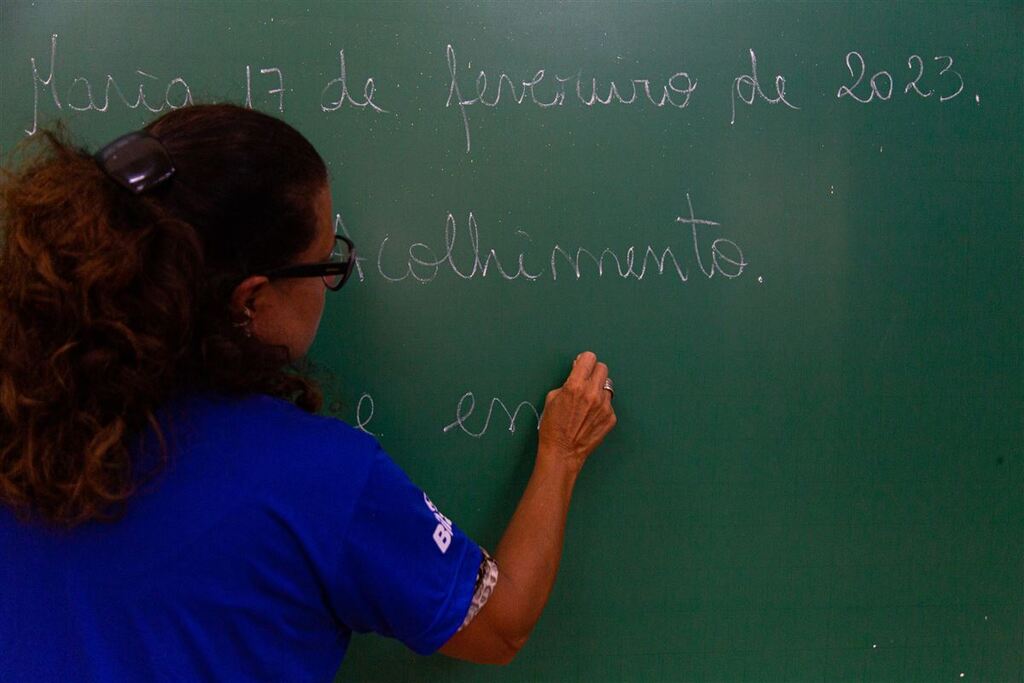 Maria 17 de fevereiro de 2023.
Acolhimento.